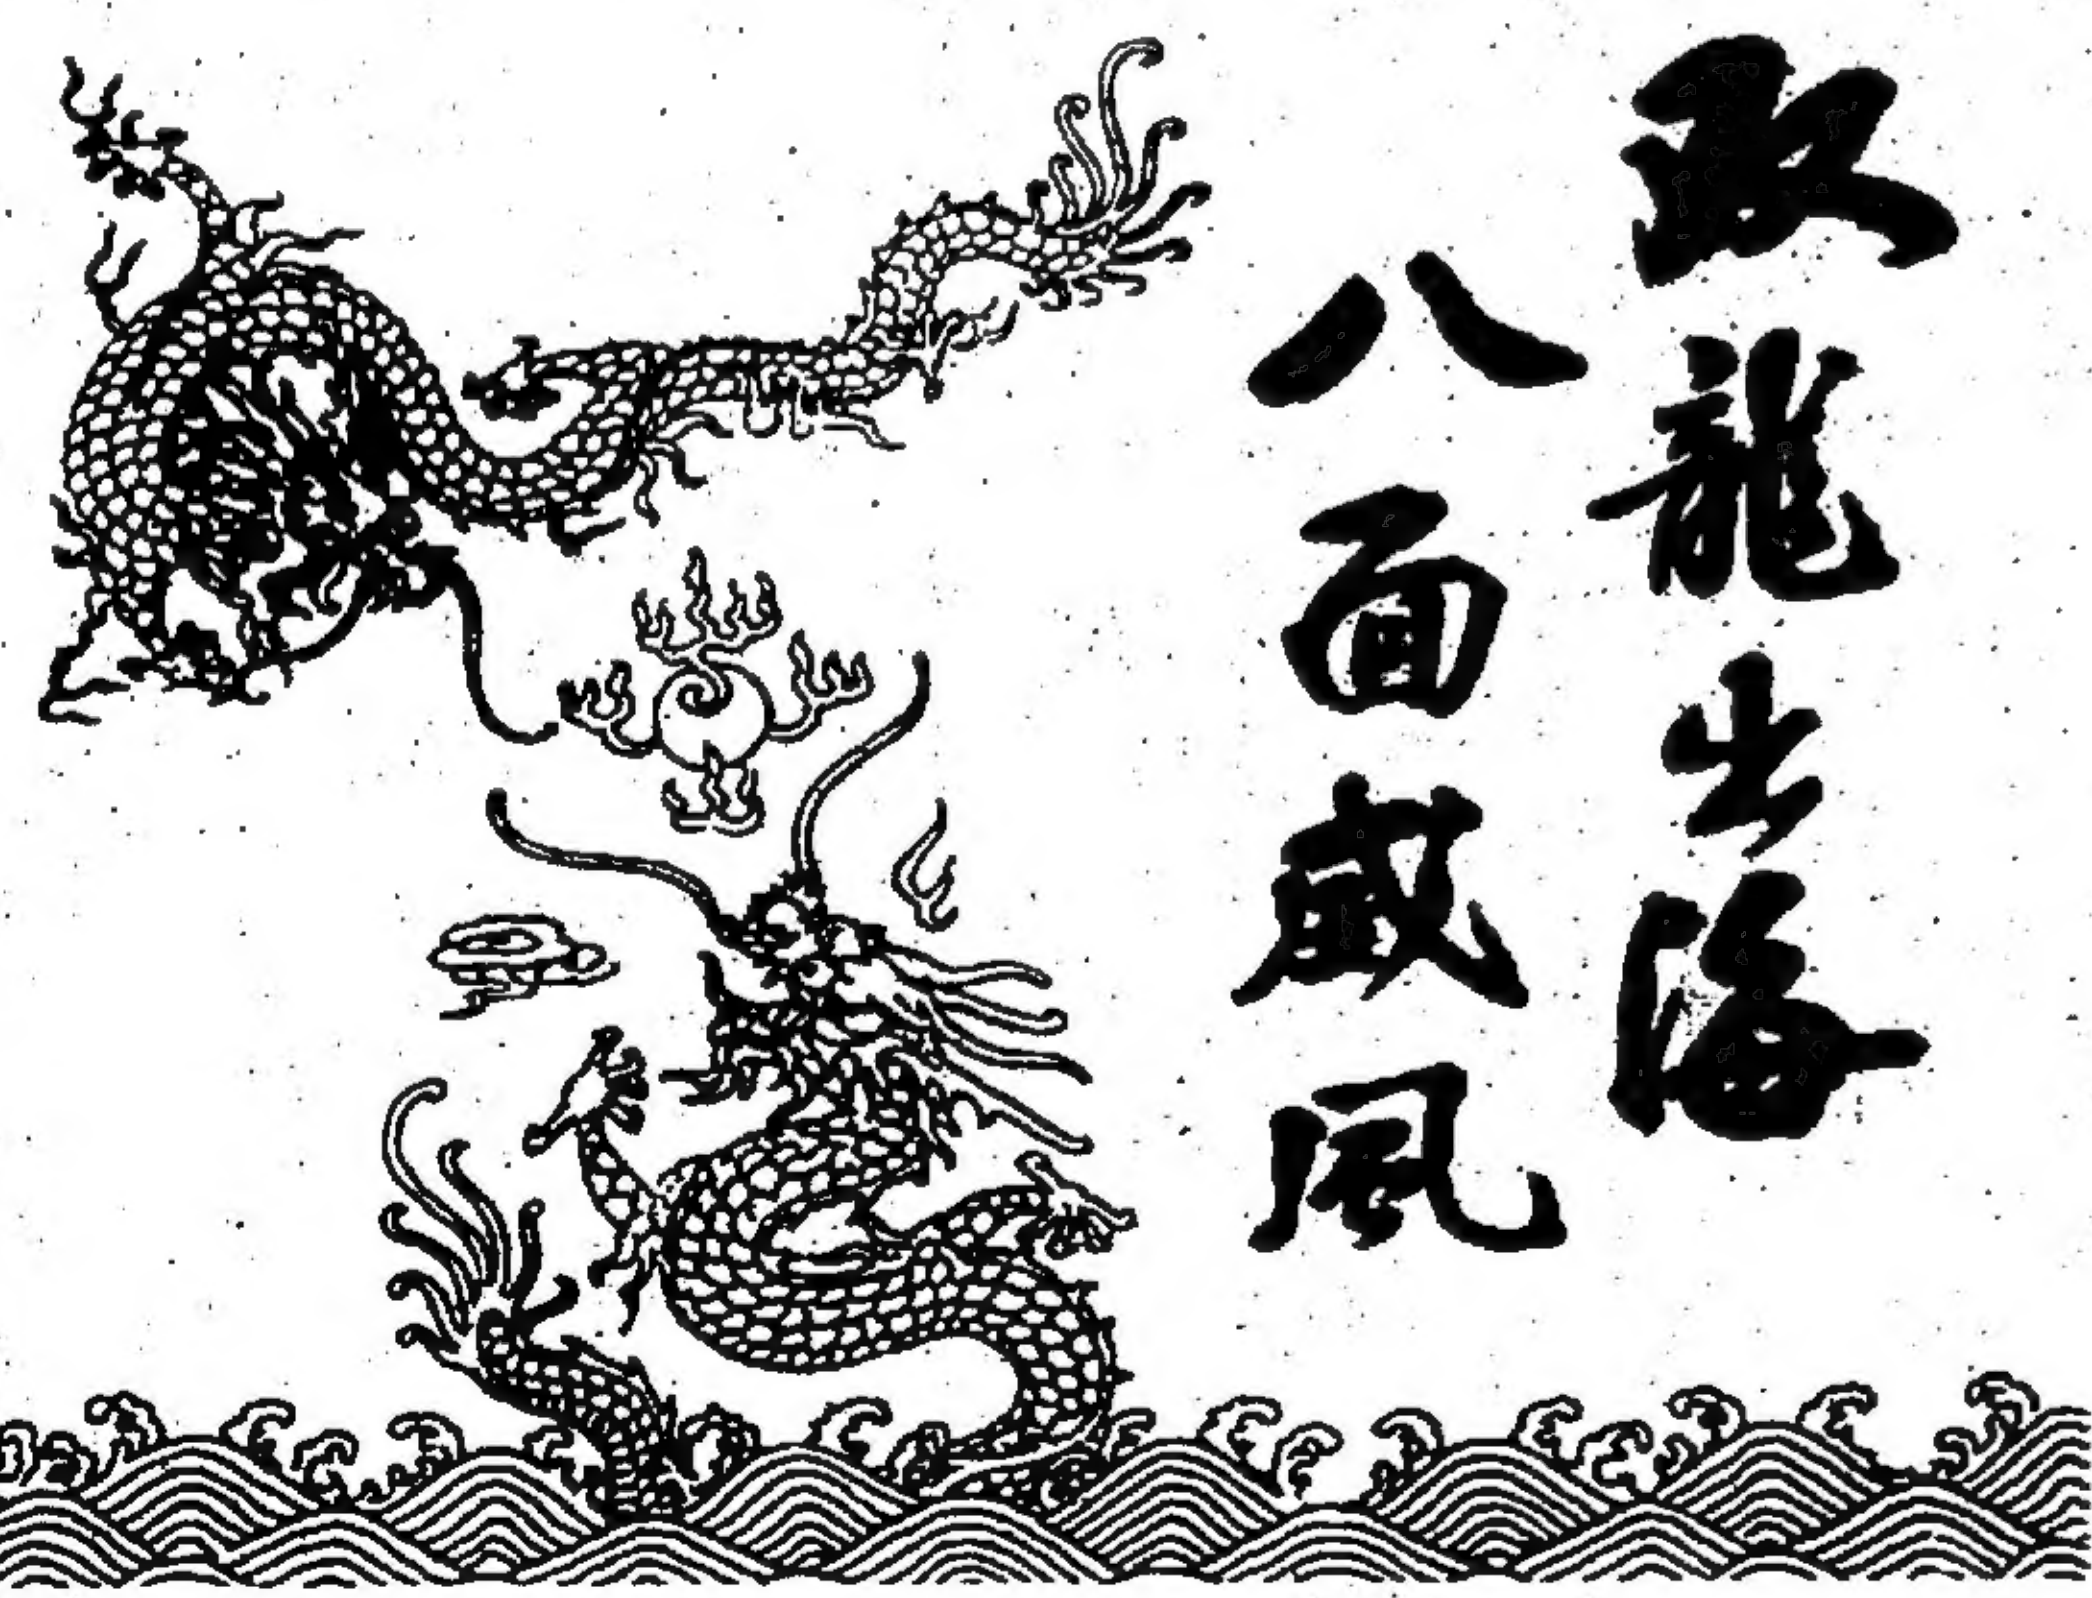 双龍出海
八面威風